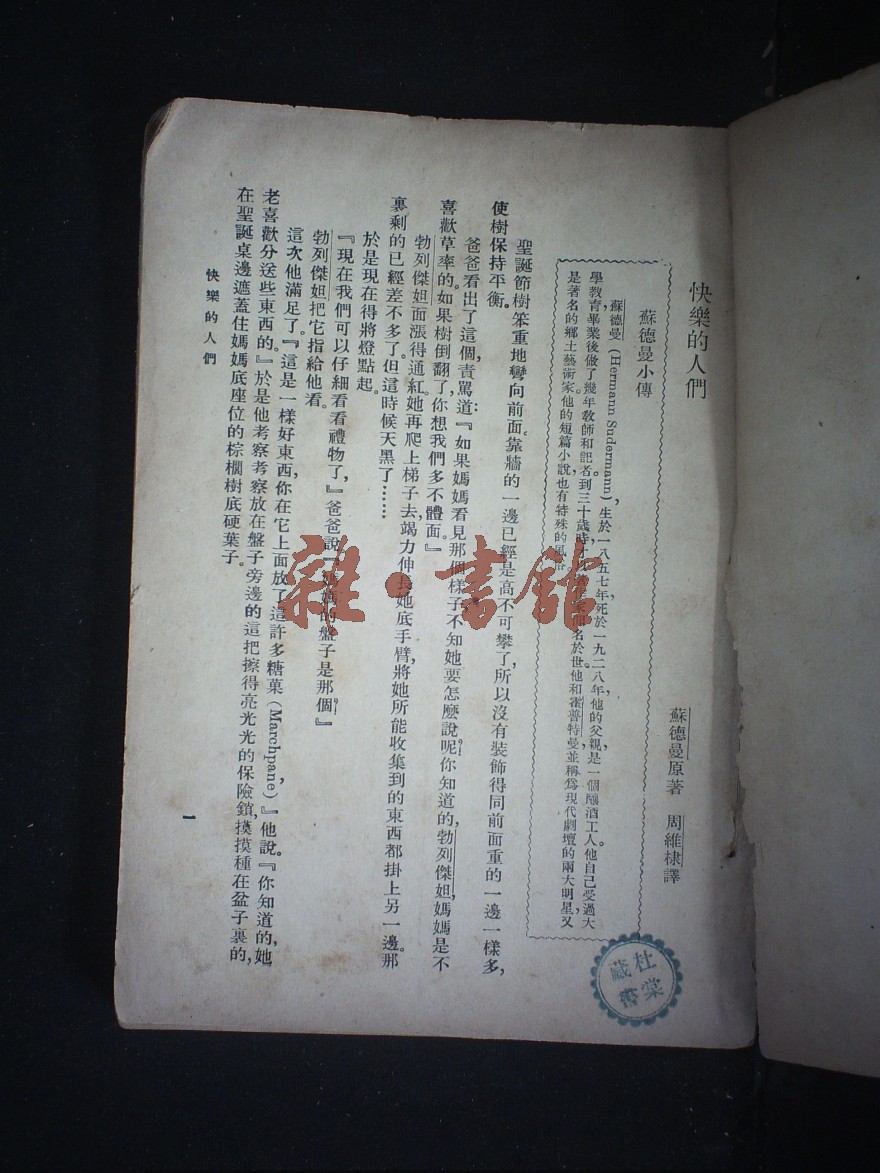 快樂的人們
蘇德曼原著 周維棣譯
蘇德曼小傳
蘇德曼(Hermann Sudermann),生於一八五七年,死於一九二八年,他的父親,是一個釀酒工人。他自己受過大
學教育,畢業後做了幾年教師和記者。到三十歲時,名於世。他和霍普特曼,並稱為現代劇壇的兩大明星,又
是著名的鄉土藝術家。他的短篇小說,也有特殊的風
聖誕節樹笨重地彎向前面。靠牆的一邊已經是高不可攀了,所以沒有裝飾得同前面重的一邊一樣多,
使樹保持平衡。
爸爸看出了這個,責罵道:『如果媽媽看見那個樣子,不知她要怎麽說呢。你知道的,勃列傑妲,媽媽是不
喜歡草率的。如果樹倒翻了,你想我們多不體面。』
勃列傑妲面漲得通紅。她再爬上梯子去,竭力伸長她底手臂,將她所能收集到的東西都掛上另一邊。那
裏剩的已經差不多了。但這時候天黑了……
於是現在得將燈點起。
『現在我們可以仔細看看禮物了,』爸爸說『媽媽的盤子是那個。』
勃列傑妲把它指給他看。
這次他滿足了。『這是一樣好東西,你在它上面放了這許多糖菓(Marchpane),』他說。『你知道的,她
老喜歡分送些東西的。』於是他考察考察放在盤子旁邊的這把擦得亮光光的保險鎖,摸摸種在盆子裏的,
在聖誕桌邊遮蓋住媽媽底座位的棕櫚樹底硬葉子。
快樂的人們
一
杜棠
藏書
雜·書館